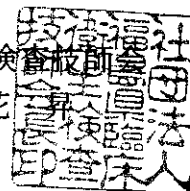 検査技師会
昇
社団法人
県臨床
衛生検査
技師会長印